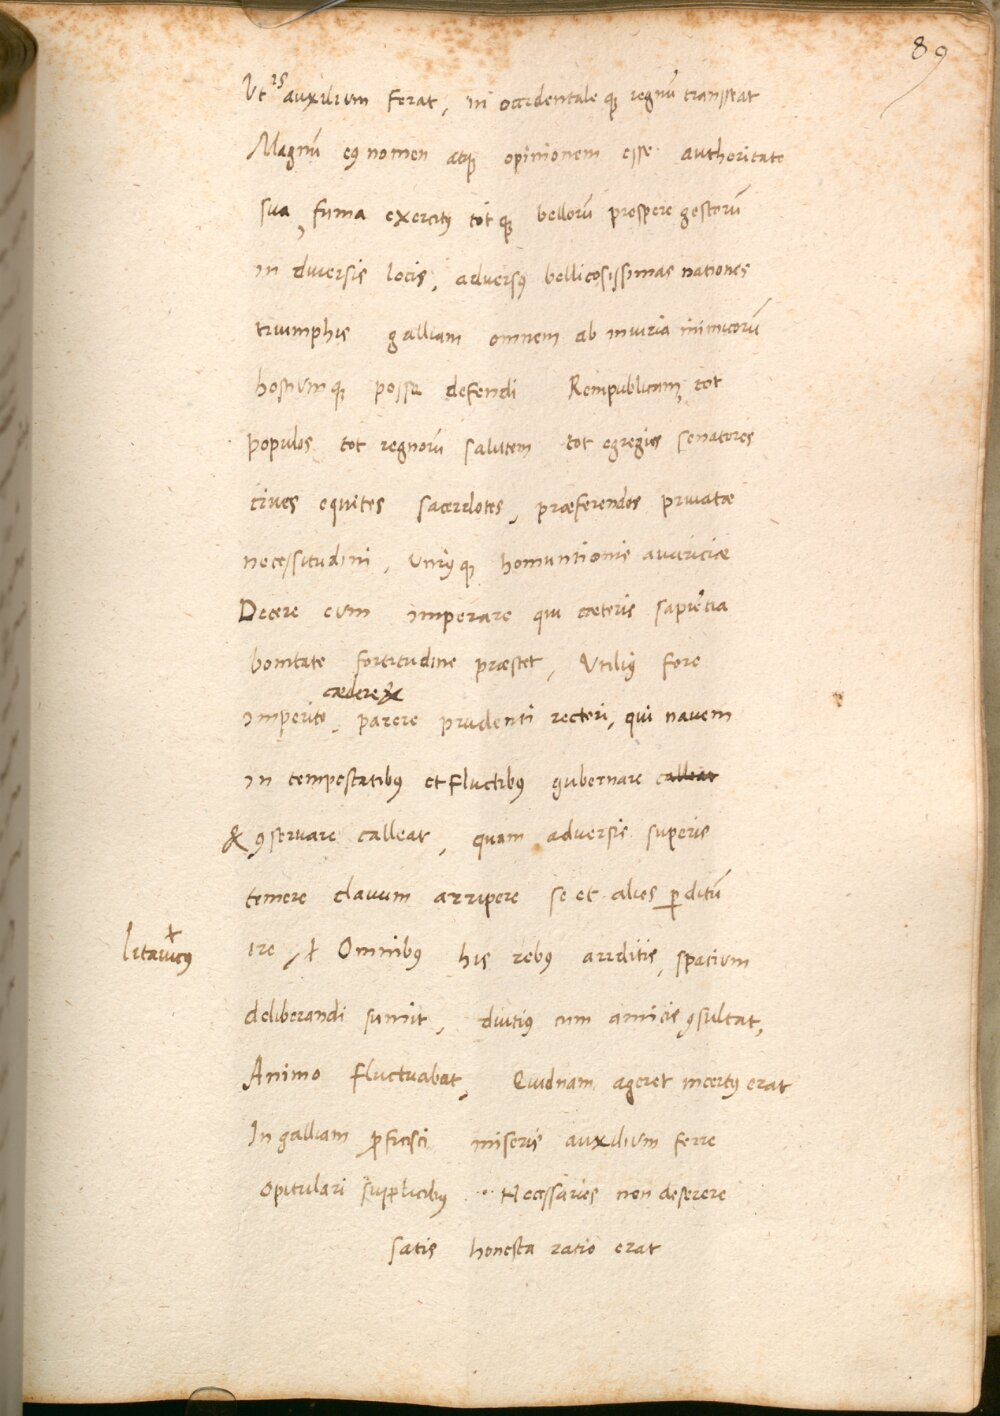 89
Ut is auxilium ferat, in occidentale q; regnũ transeat
Magnũ eꝰ nomen atq; opinionem esse authoritate
sua, fama exercitꝰ tot q; bellorũ prospere gestorũ
in diversis locis, adversꝰ bellicosissimas nationes
triumphis galliam omnem ab iniuria inimicorũ
hostium q; posse defendi Rempublicam, tot
populos tot regnorũ salutem tot egregios senatores
cives equites sacerdotes, præferendos privatæ
necessitudini, Uniꝰ q; homuntionis avariciæ
Decere eum imperare qui cæteris sapiẽtia
bonitate fortitudine præstet, Utiliꝰ fore
cædere &
imperito, parere prudenti rectori, qui navem
in tempestatibꝰ et fluctibꝰ gubernare calleat
& ꝯservare calleat, quam adversis superis
temere clavum arripere se et alios ꝑditũ
litavicꝰ
ire, Omnibꝰ his rebꝰ auditis, spatium
deliberandi sumit, diutiꝰ cum amicis ꝯsultat,
Animo fluctuabat, Quidnam ageret incertꝰ erat
In galliam ꝓficisci miseris auxilium ferre
opitulari supplicibꝰ Necessarios non deserere
satis honesta ratio erat